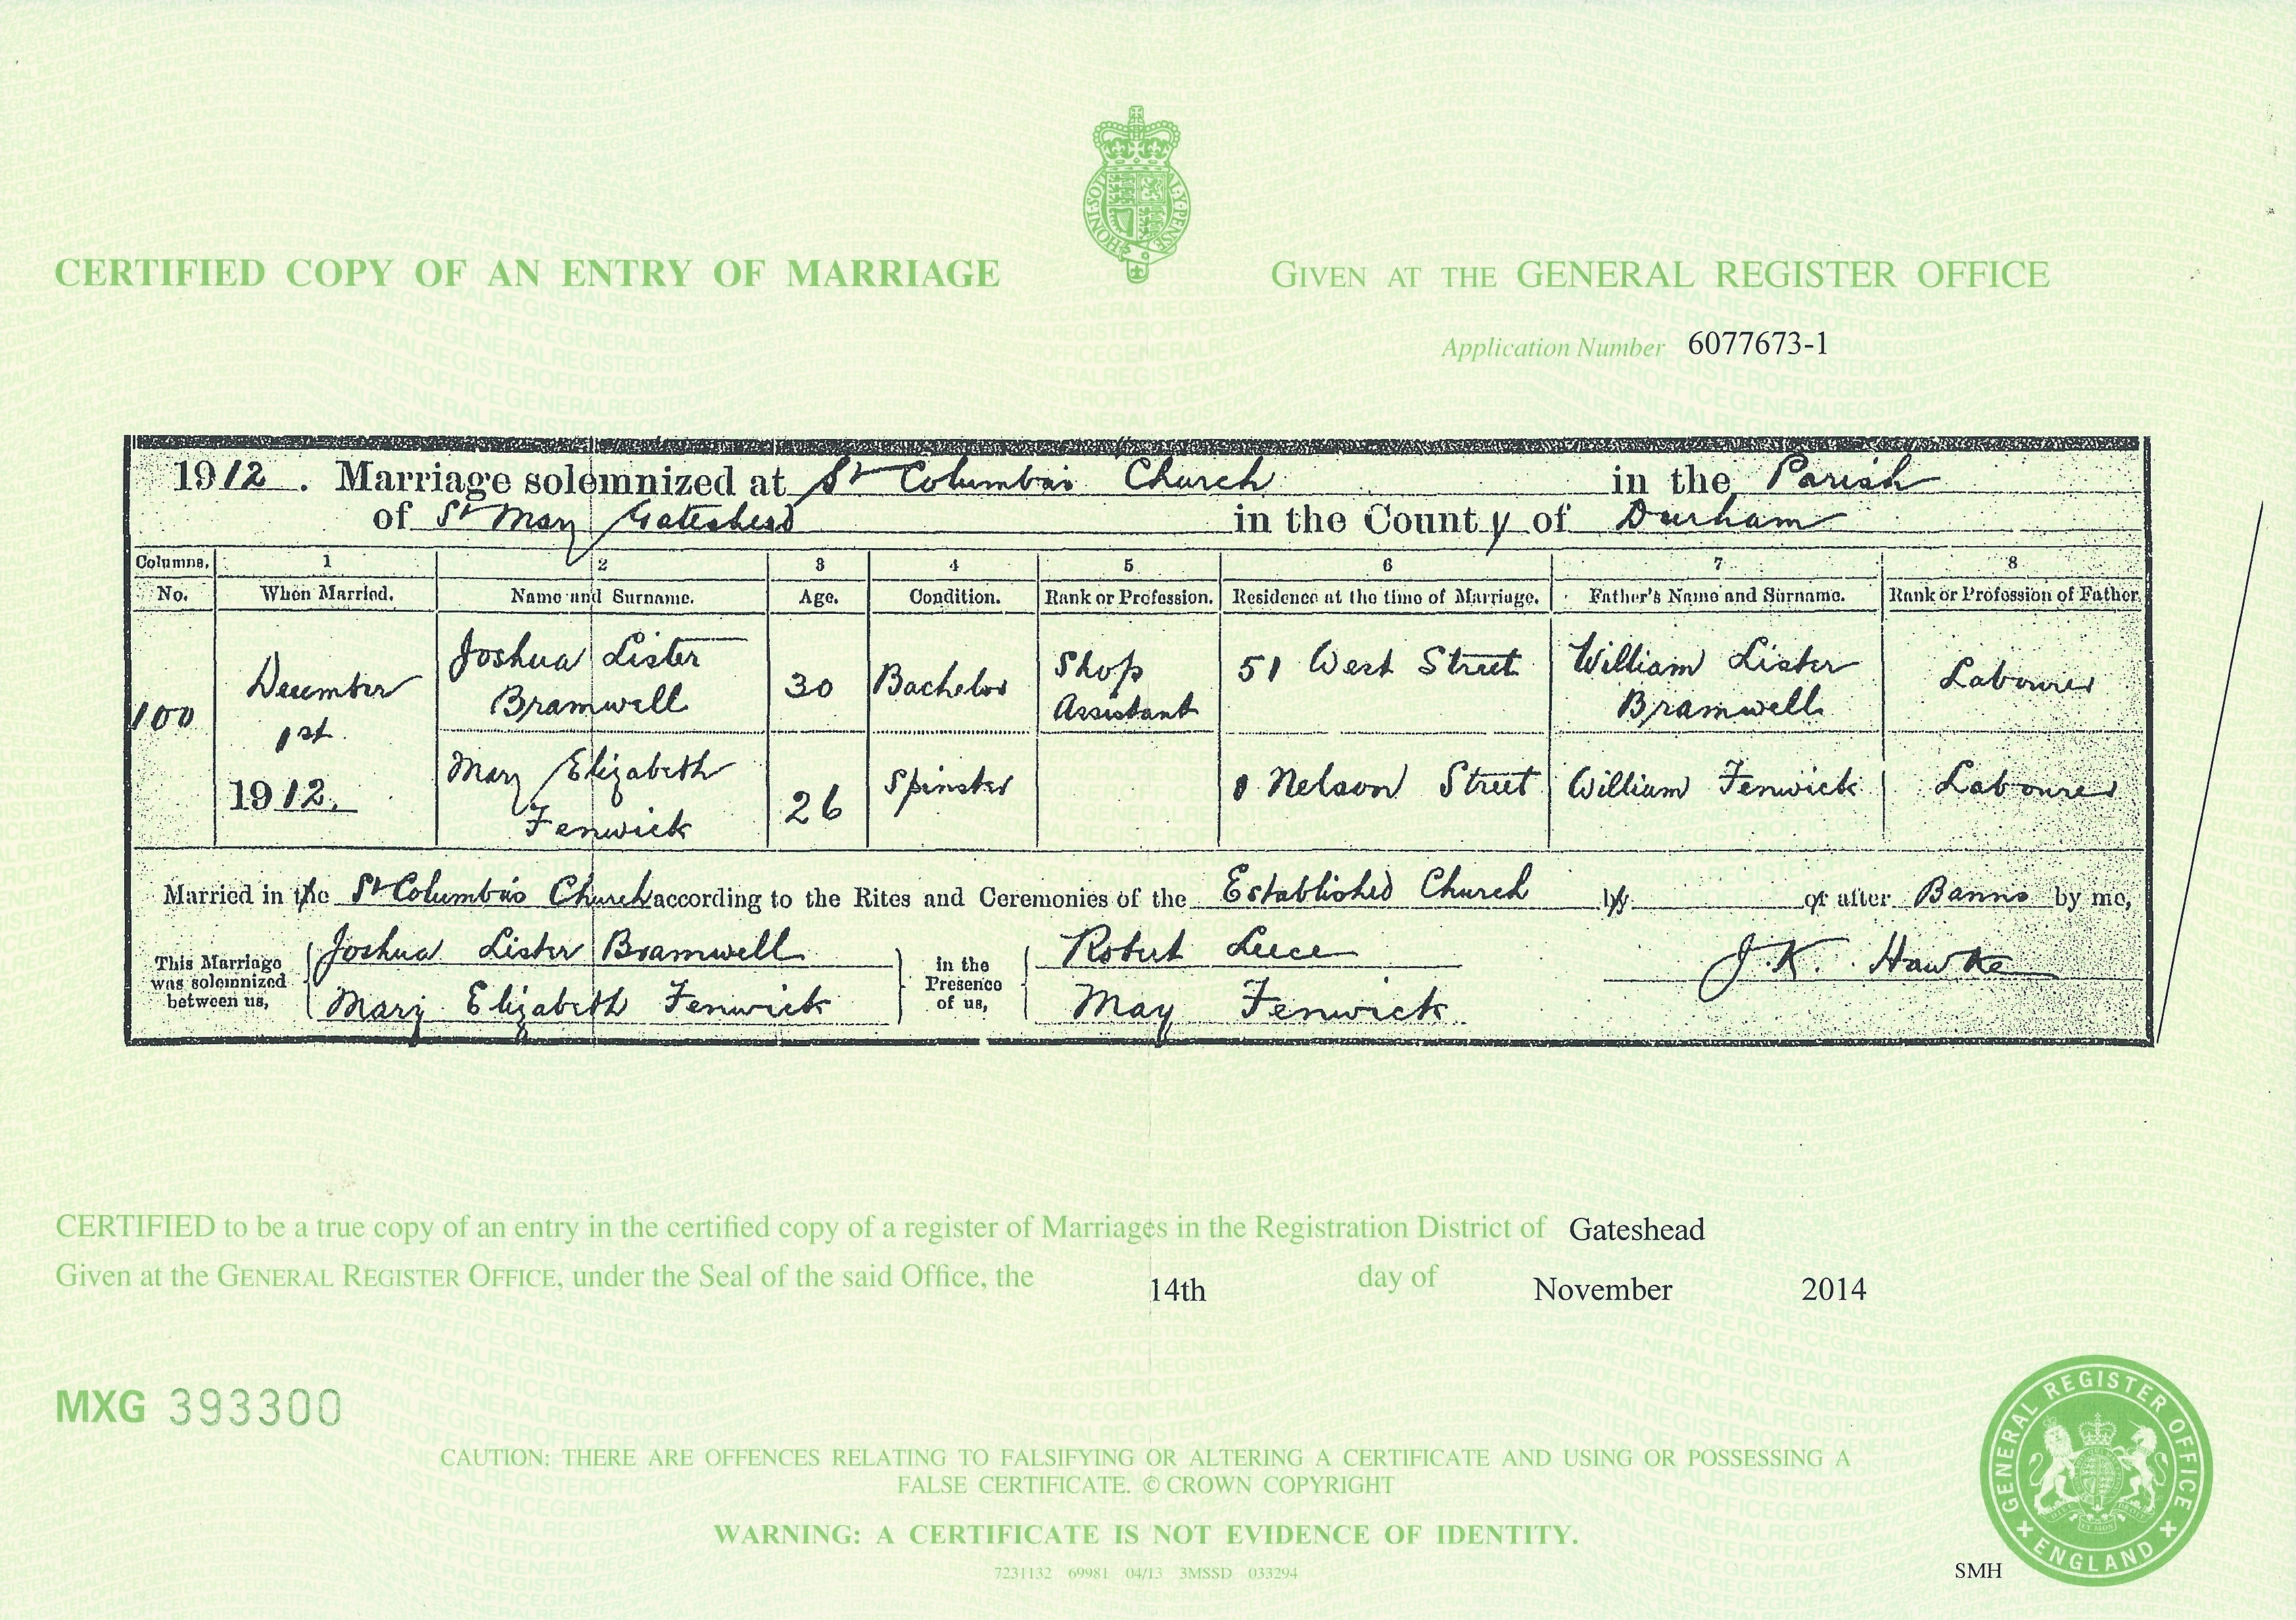 HONI·SOIT Y·PENSE
CERTIFIED COPY OF AN ENTRY OF MARRIAGE
GIVEN AT THE GENERAL REGISTER OFFICE
Application Number 6077673-1
1912. Marriage solemnized at St Columba's Church in the Parish
of St Mary Gateshead in the County of Durham
Columns. 1 2 3 4 5 6 7 8
No. When Married. Name and Surname. Age. Condition. Rank or Profession. Residence at the time of Marriage. Father's Name and Surname. Rank or Profession of Father.
100 December 1st 1912.
Joshua Lister Bramwell 30 Bachelor Shop Assistant 51 West Street William Lister Bramwell Labourer
Mary Elizabeth Fenwick 26 Spinster 8 Nelson Street William Fenwick Labourer
Married in the St Columba's Church according to the Rites and Ceremonies of the Established Church by or after Banns by me,
This Marriage was solemnized between us, Joshua Lister Bramwell in the Presence of us, Robert Leece J. K. Hawke
Mary Elizabeth Fenwick May Fenwick
CERTIFIED to be a true copy of an entry in the certified copy of a register of Marriages in the Registration District of Gateshead
Given at the GENERAL REGISTER OFFICE, under the Seal of the said Office, the 14th day of November 2014
MXG 393300
CAUTION: THERE ARE OFFENCES RELATING TO FALSIFYING OR ALTERING A CERTIFICATE AND USING OR POSSESSING A
FALSE CERTIFICATE. © CROWN COPYRIGHT
WARNING: A CERTIFICATE IS NOT EVIDENCE OF IDENTITY.
7231132 69981 04/13 3MSSD 033294
SMH
GENERAL REGISTER OFFICE
ENGLAND